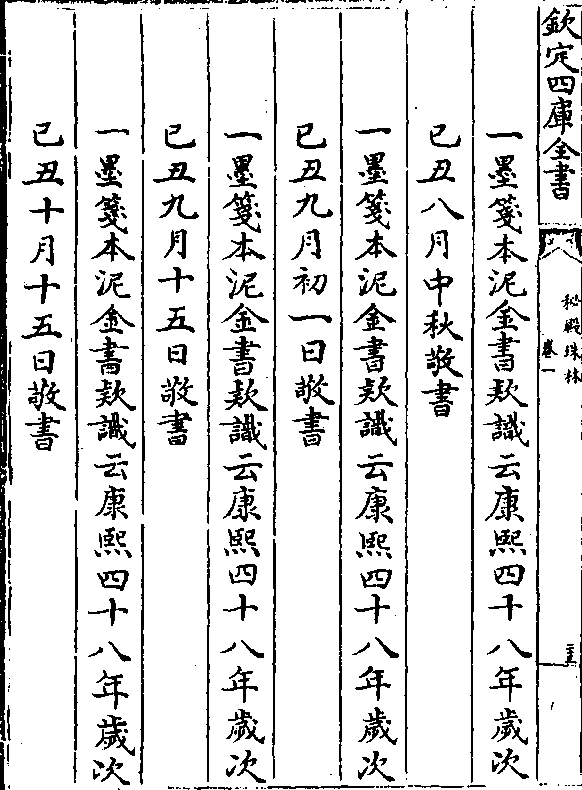 欽定四庫全書
秘殿珠林
卷一
一墨箋本泥金書欵識云康熙四十八年歲次
己丑八月中秋敬書
一墨箋本泥金書欵識云康熙四十八年歲次
己丑九月初一日敬書
一墨箋本泥金書欵識云康熙四十八年歲次
己丑九月十五日敬書
一墨箋本泥金書欵識云康熙四十八年歲次
己丑十月十五日敬書